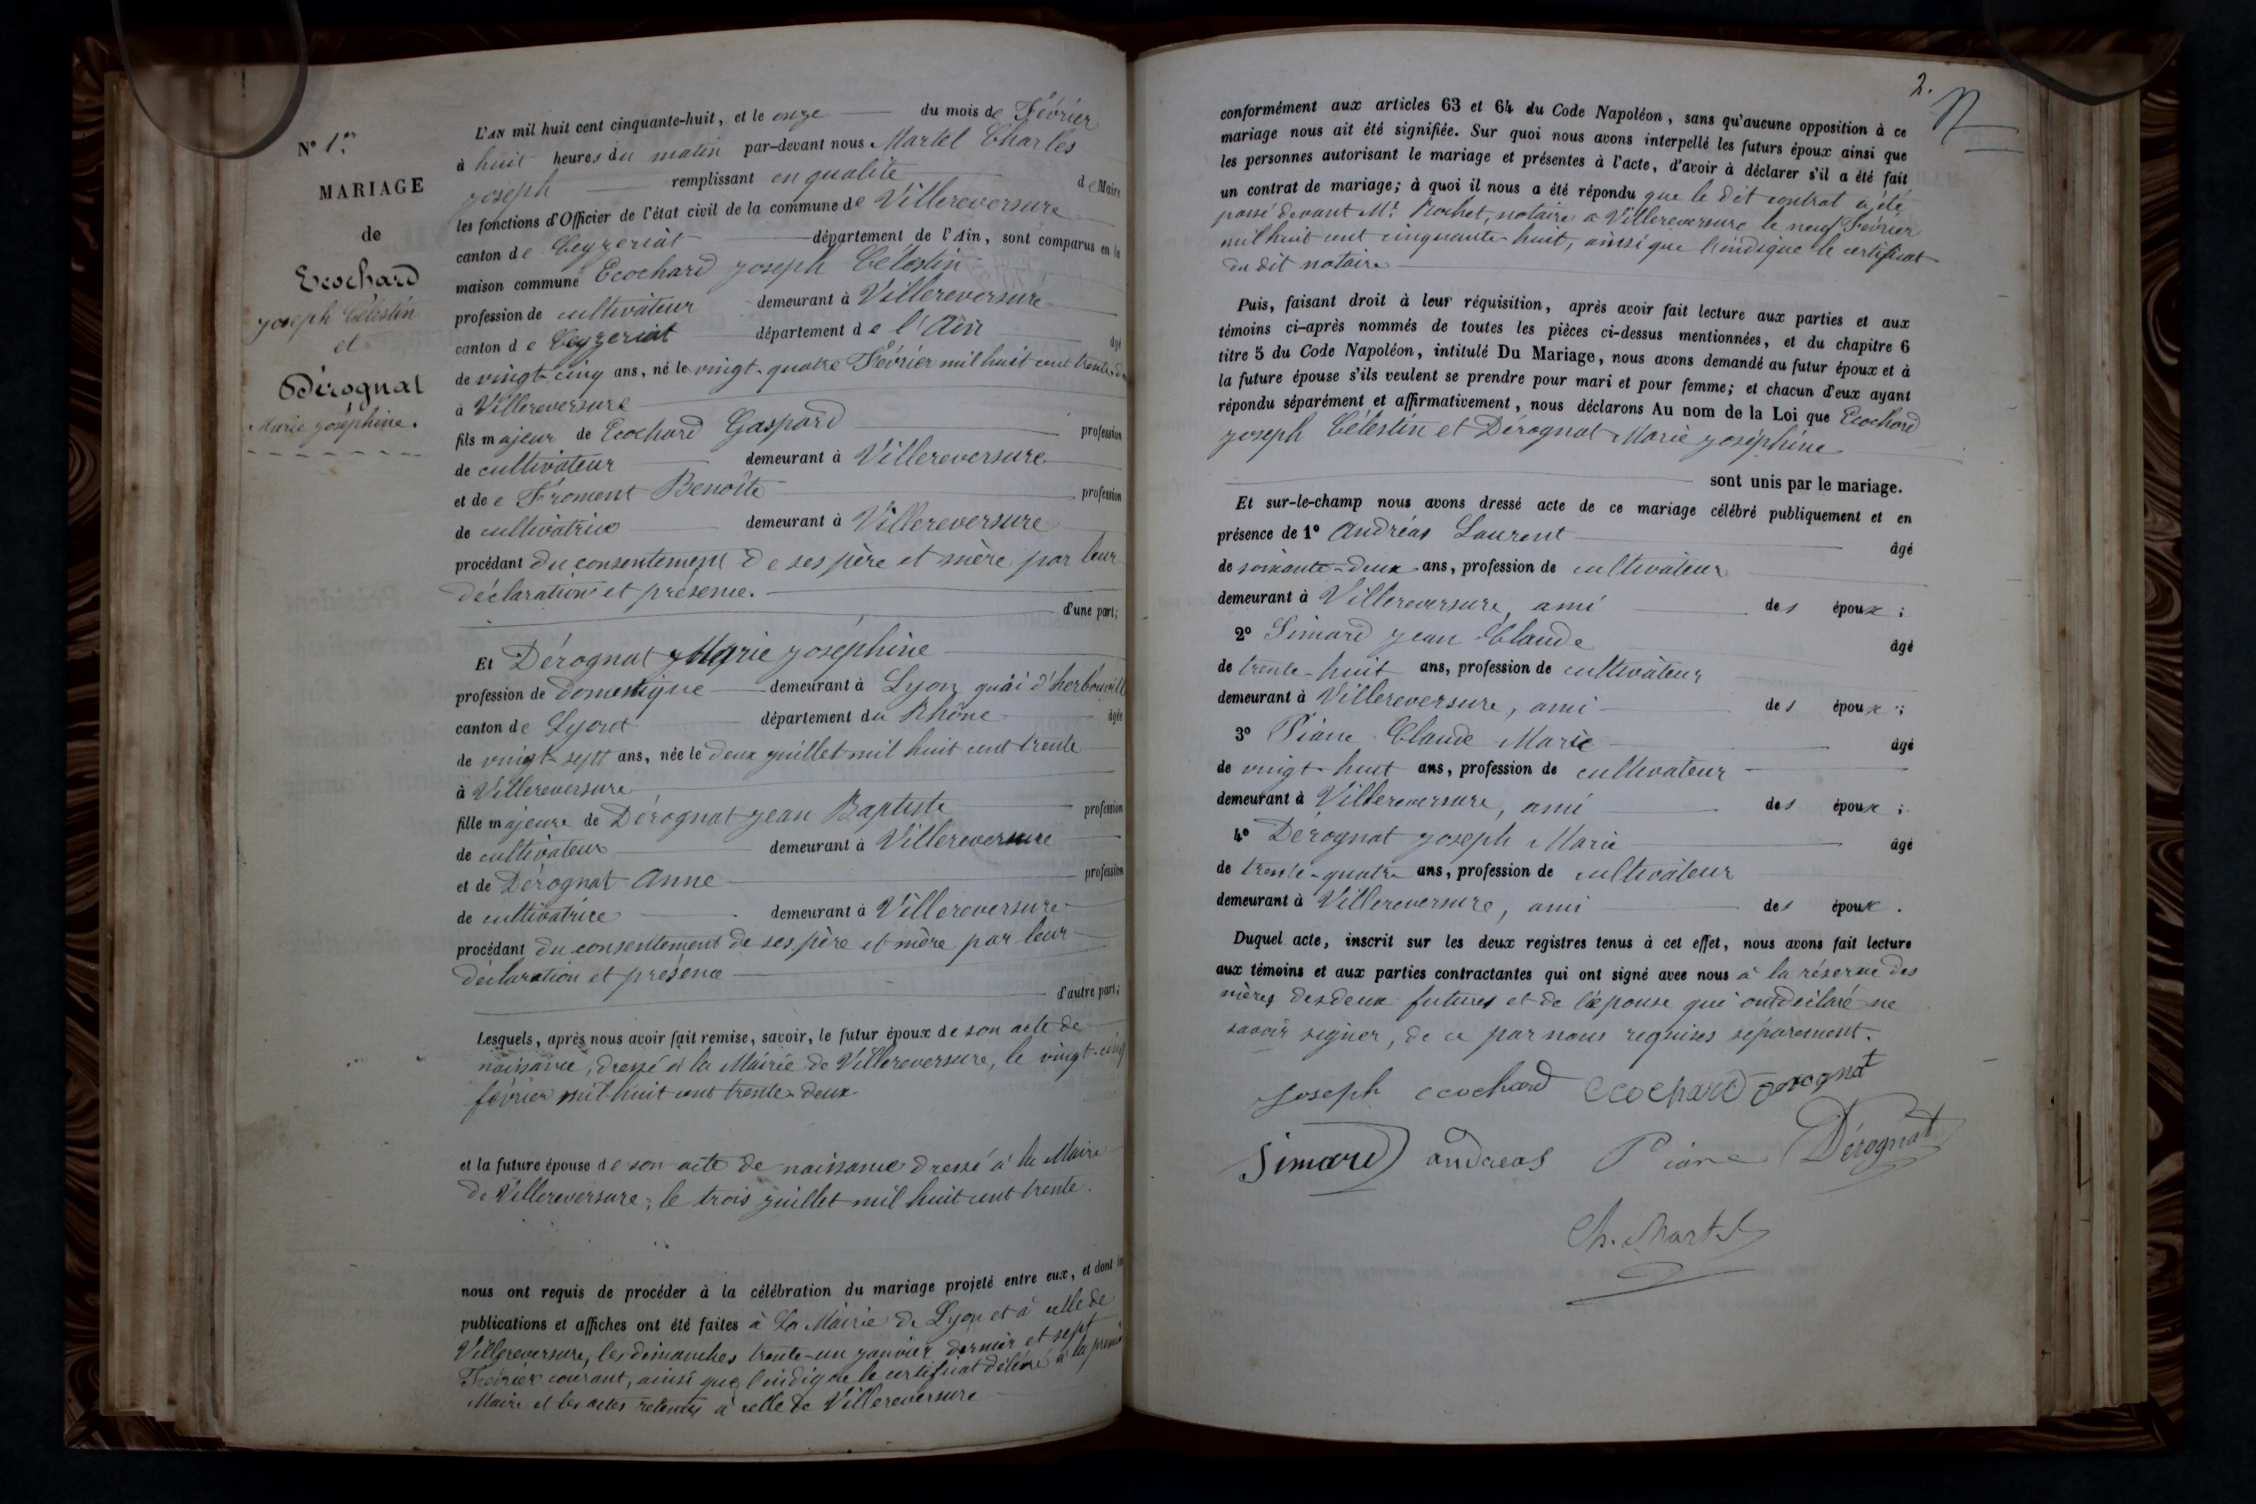 N° 1er
MARIAGE
de
Ecochard
Joseph Célestin
et
Dérognat
Marie Joséphine.
L'AN mil huit cent cinquante-huit, et le onze du mois de Février
à huit heures du matin par-devant nous Martel Charles
Joseph remplissant en qualité de Maire
les fonctions d'Officier de l'état civil de la commune de Villereversure
canton de Ceyzeriat département de l'Ain, sont comparus en la
maison commune Ecochard Joseph Célestin
profession de cultivateur demeurant à Villereversure
canton de Ceyzeriat département de l'Ain âgé
de vingt-cinq ans, né le vingt-quatre Février mil huit cent trente-
à Villereversure
fils majeur de Ecochard Gaspard profession
de cultivateur demeurant à Villereversure
et de e Froment Benoîte profession
de cultivatrice demeurant à Villereversure
procédant du consentement de ses père et mère par leur
déclaration et présence.
d'une part;
Et Dérognat Marie Joséphine
profession de domestique demeurant à Lyon quai d'herbouvill
canton de Lyon département du Rhône âgée
de vingt-sept ans, née le deux juillet mil huit cent trente
à Villereversure
fille majeure de Dérognat Jean Baptiste profession
de cultivateur demeurant à Villereversure
et de Dérognat Anne profession
de cultivatrice demeurant à Villereversure
procédant du consentement de ses père et mère par leur
déclaration et présence
d'autre part;
Lesquels, après nous avoir fait remise, savoir, le futur époux de son acte de
naissance, dressé à la Mairie de Villereversure, le vingt-cinq
février mil huit cent trente-deux
et la future épouse de son acte de naissance dressé à la Mairie
de Villereversure, le trois juillet mil huit cent trente.
nous ont requis de procéder à la célébration du mariage projeté entre eux, et dont les
publications et affiches ont été faites à la Mairie de Lyon et à celle de
Villereversure, les dimanches trente-un janvier dernier et sept
Février courant, ainsi que l'indique le certificat délivré à la
Mairie et les actes à celle de Villereversure
2.
conformément aux articles 63 et 64 du Code Napoléon, sans qu'aucune opposition à ce
mariage nous ait été signifiée. Sur quoi nous avons interpellé les futurs époux ainsi que
les personnes autorisant le mariage et présentes à l'acte, d'avoir à déclarer s'il a été fait
un contrat de mariage; à quoi il nous a été répondu que le dit contrat a été
passé devant Me Rochet, notaire à Villereversure le neuf Février
mil huit cent cinquante-huit, ainsi que l'indique le certificat
du dit notaire
Puis, faisant droit à leur réquisition, après avoir fait lecture aux parties et aux
témoins ci-après nommés de toutes les pièces ci-dessus mentionnées, et du chapitre 6
titre 5 du Code Napoléon, intitulé Du Mariage, nous avons demandé au futur époux et à
la future épouse s'ils veulent se prendre pour mari et pour femme; et chacun d'eux ayant
répondu séparément et affirmativement, nous déclarons Au nom de la Loi que Ecochard
Joseph Célestin et Dérognat Marie Joséphine
sont unis par le mariage.
Et sur-le-champ nous avons dressé acte de ce mariage célébré publiquement et en
présence de 1° Andréas Laurent âgé
de soixante-deux ans, profession de cultivateur
demeurant à Villereversure, ami des époux;
2° Simard Jean Claude âgé
de trente-huit ans, profession de cultivateur
demeurant à Villereversure, ami des époux;
3° Piane Claude Marie âgé
de vingt-huit ans, profession de cultivateur
demeurant à Villereversure, ami des époux;
4° Dérognat Joseph Marie âgé
de trente-quatre ans, profession de cultivateur
demeurant à Villereversure, ami des époux.
Duquel acte, inscrit sur les deux registres tenus à cet effet, nous avons fait lecture
aux témoins et aux parties contractantes qui ont signé avec nous à la réserve des
mères des deux futurs et de l'épouse qui ont déclaré ne
savoir signer, de ce par nous requises séparément.
Joseph ecochard ecochard derognat
Simard andreas Piane Dérognat
Ch. Martel